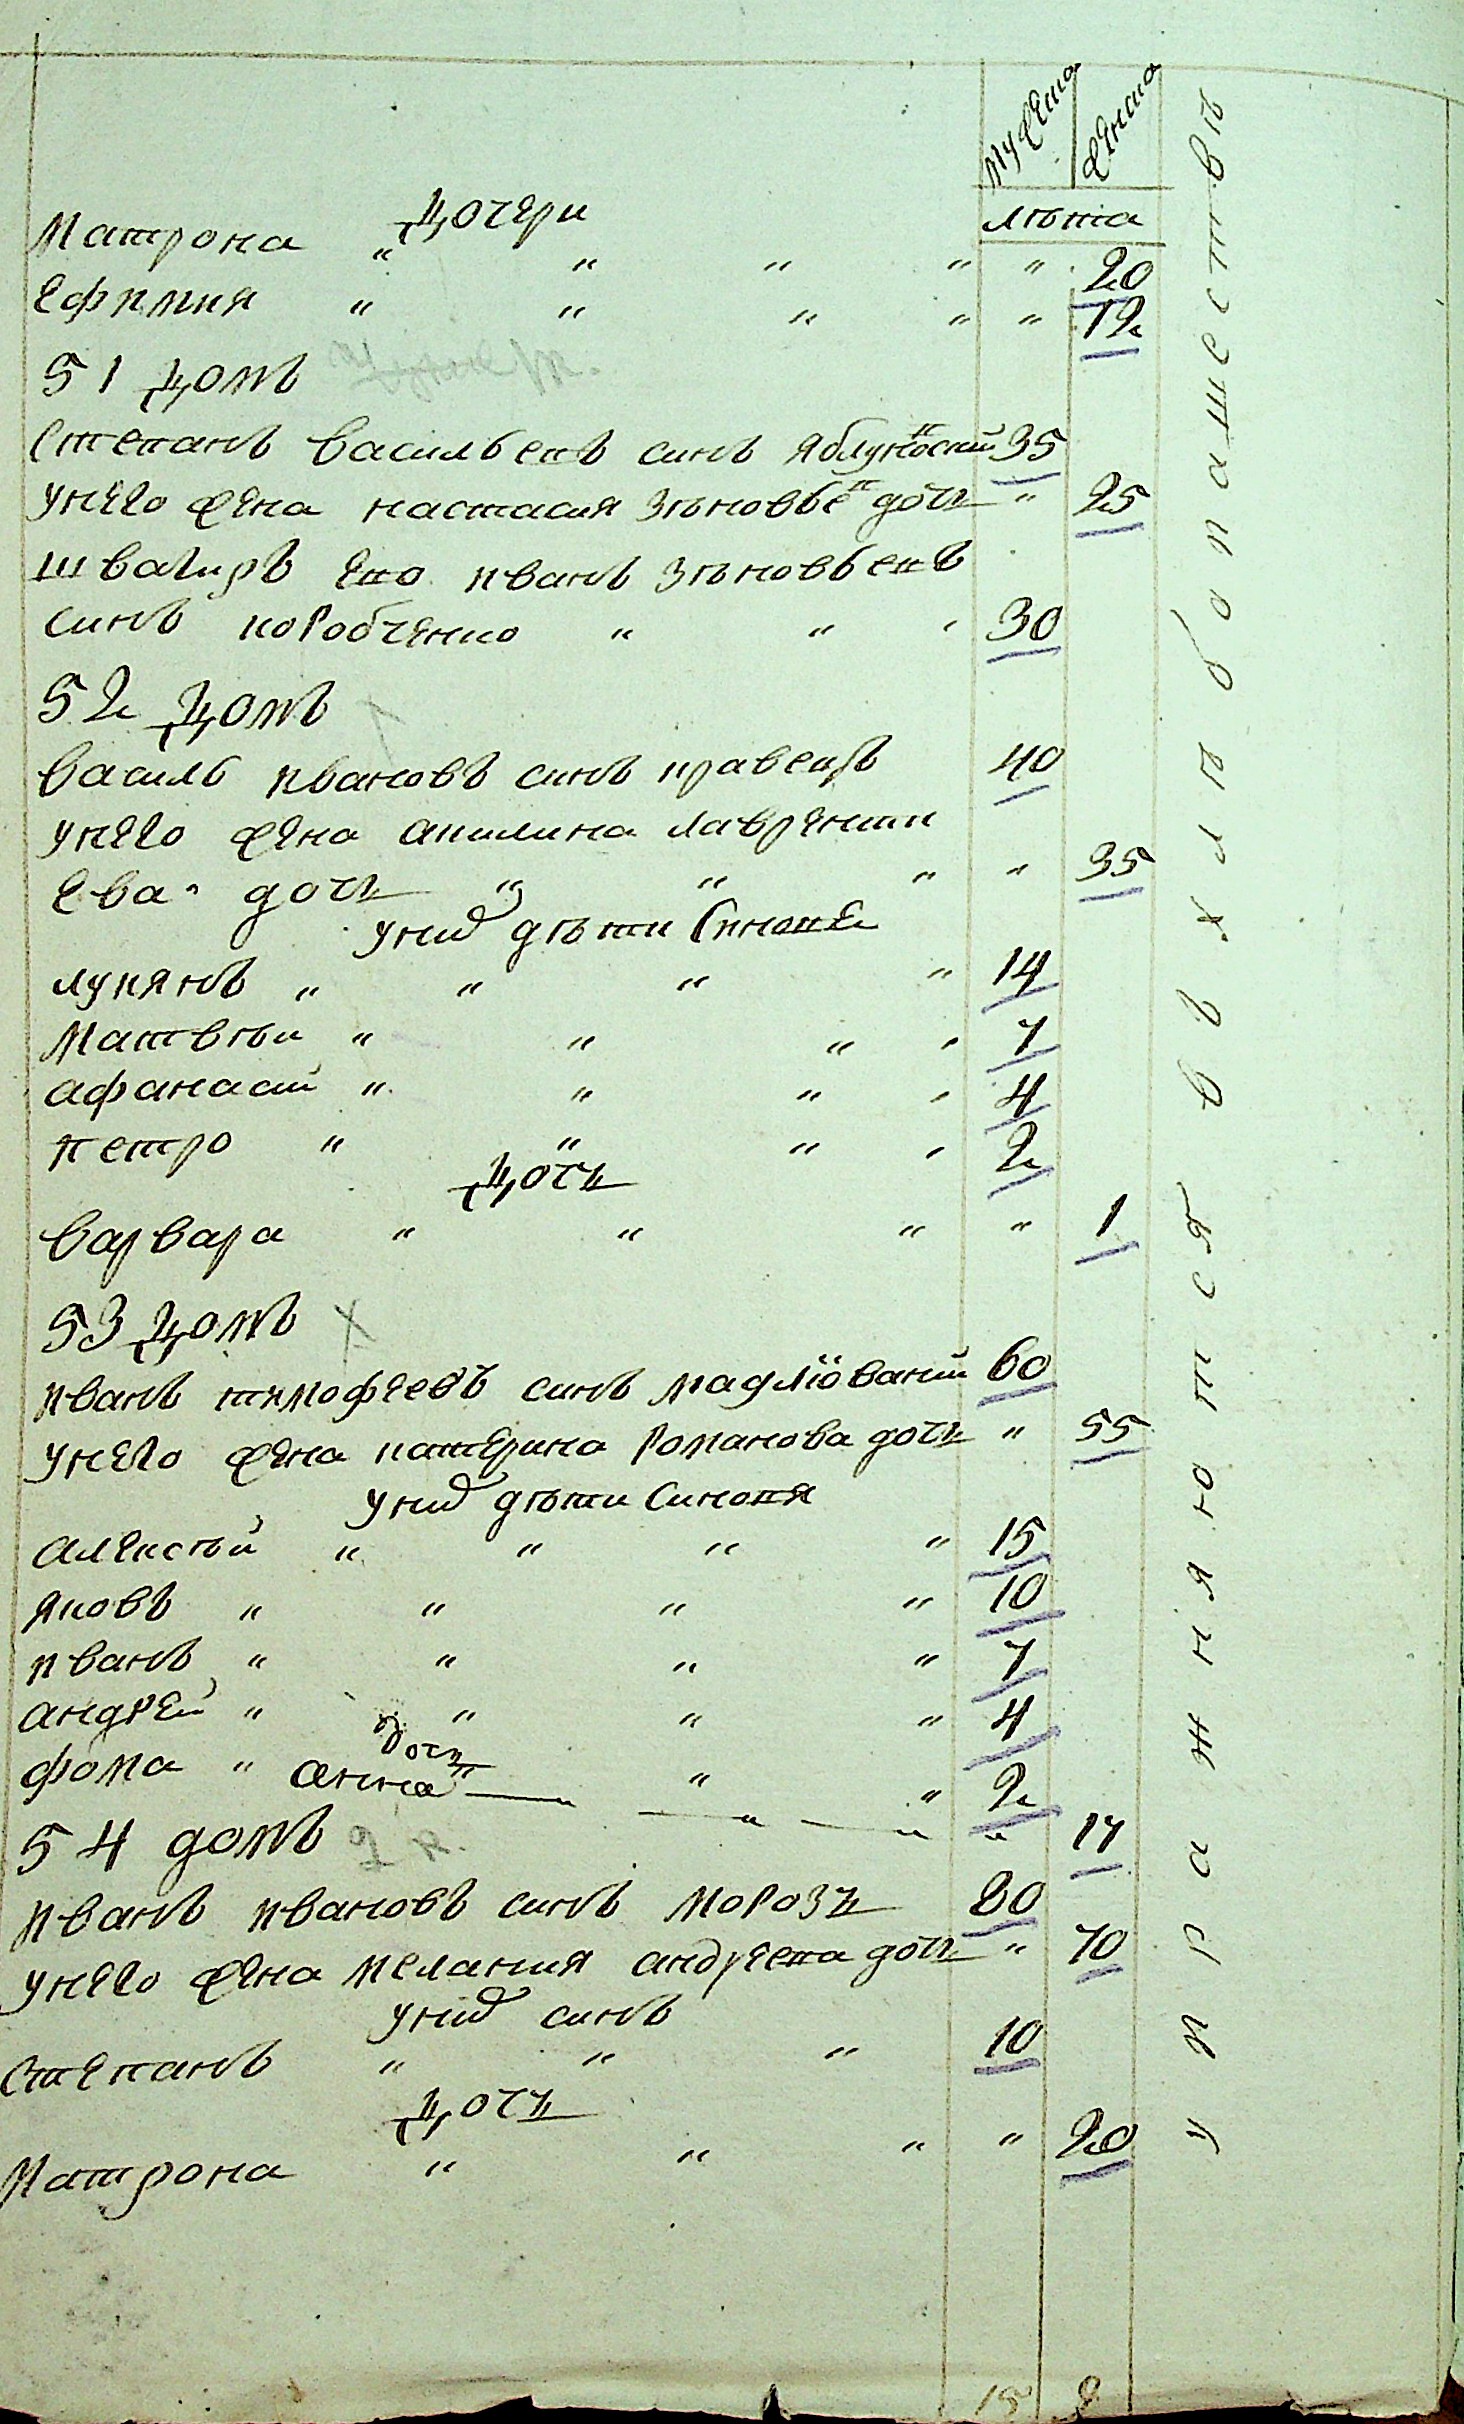 мужеска женска
лѣта
дочери
Матрона " " " " " 20
Ефимия " " " " " 19
51 домъ
Степанъ Васильевъ синъ Яблуновский 35
унего жена настасия Зѣновьева дочь " 25
швагиръ его иванъ Зѣновьевъ
синъ коробченко " " " 30
52 домъ
Василь ивановъ синъ кравецъ 40
унего жена акилина лаврентиева дочь " " " " 35
уних дѣти Синове
лукянъ " " " " 14
Матвѣй " " " " 7
афанасий " " " " 4
петро " " " " 2
дочь
варвара " " " " 1
53 домъ
иванъ тимофеевъ синъ мадлїований 60
унего жена катерина Романова дочь " 55
уних дѣти Синовя
алексѣй " " " " 15
яковъ " " " " 10
иванъ " " " " 7
андрей " " " " 4
фома " " " " 2
дочь
анна " " " 17
54 домъ
иванъ ивановъ синъ морозъ 80
унего жена мелания андреева дочь " 70
уних синъ
степанъ " " " 10
дочь
Матрона " " " " 20
15 9
упражняются въ хлѣбопашествѣ